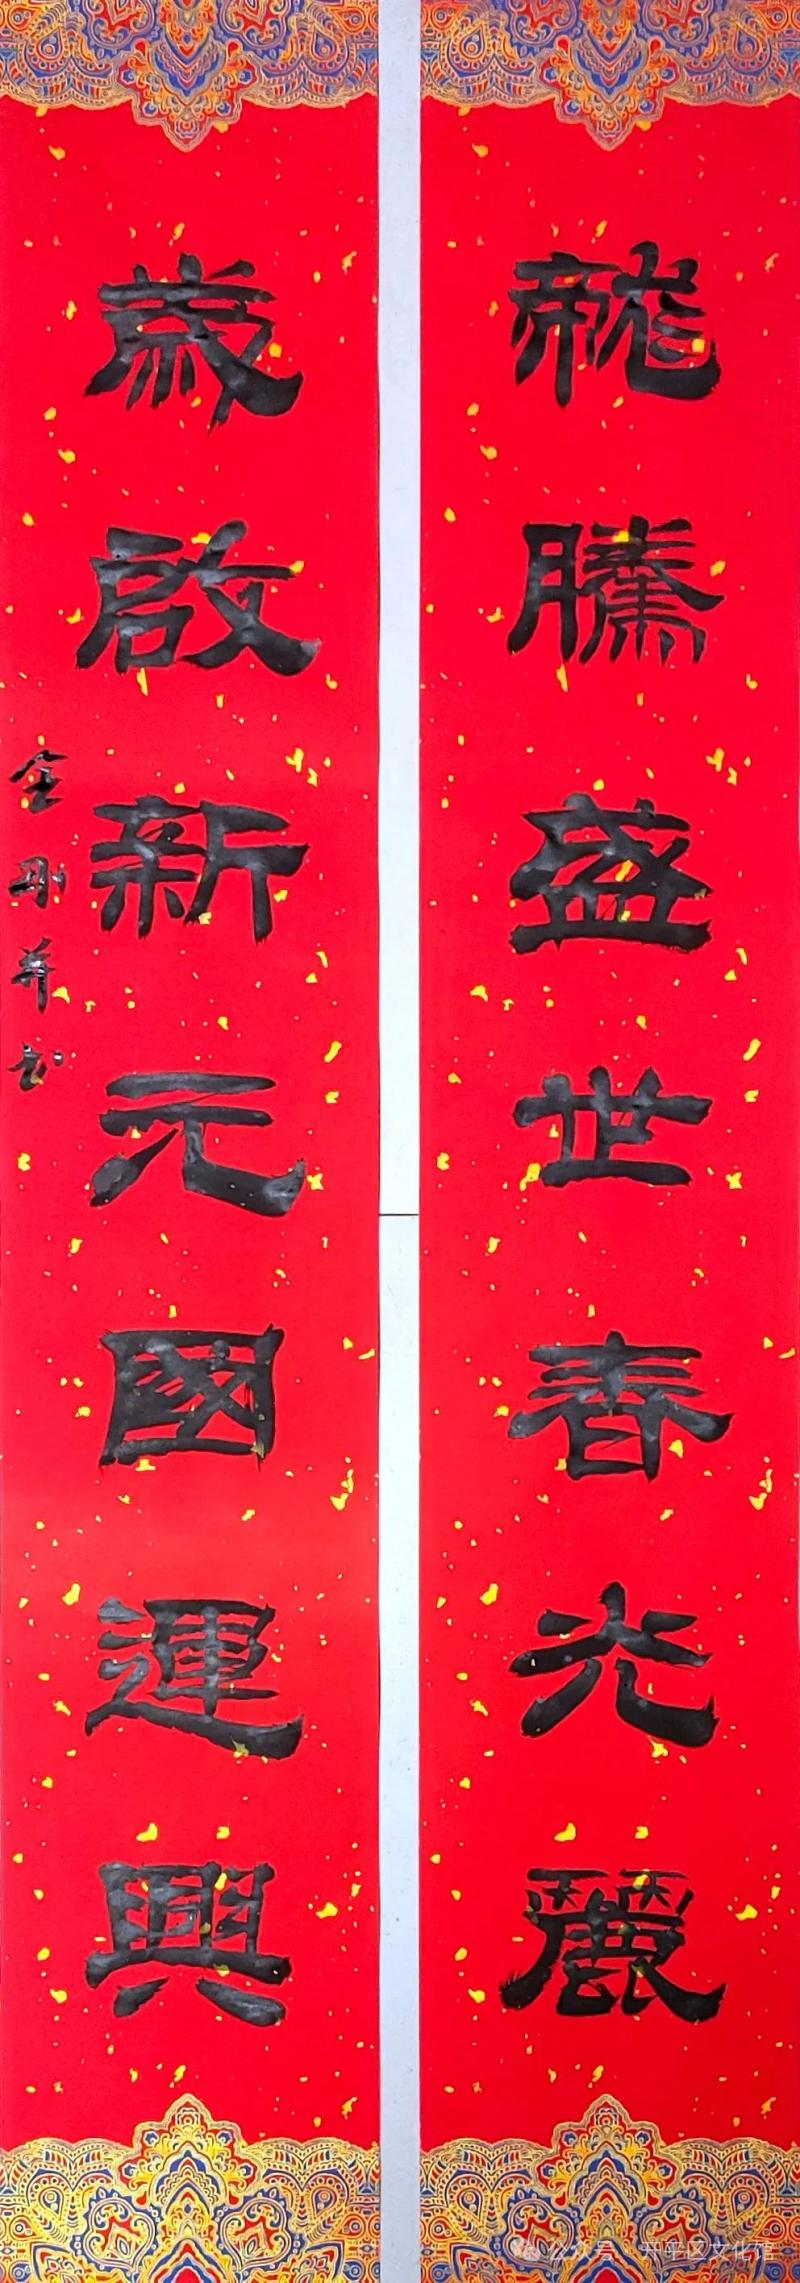 龍騰盛世春光麗
歲啟新元國運興
金剛並書
公众号 · 开平区文化馆